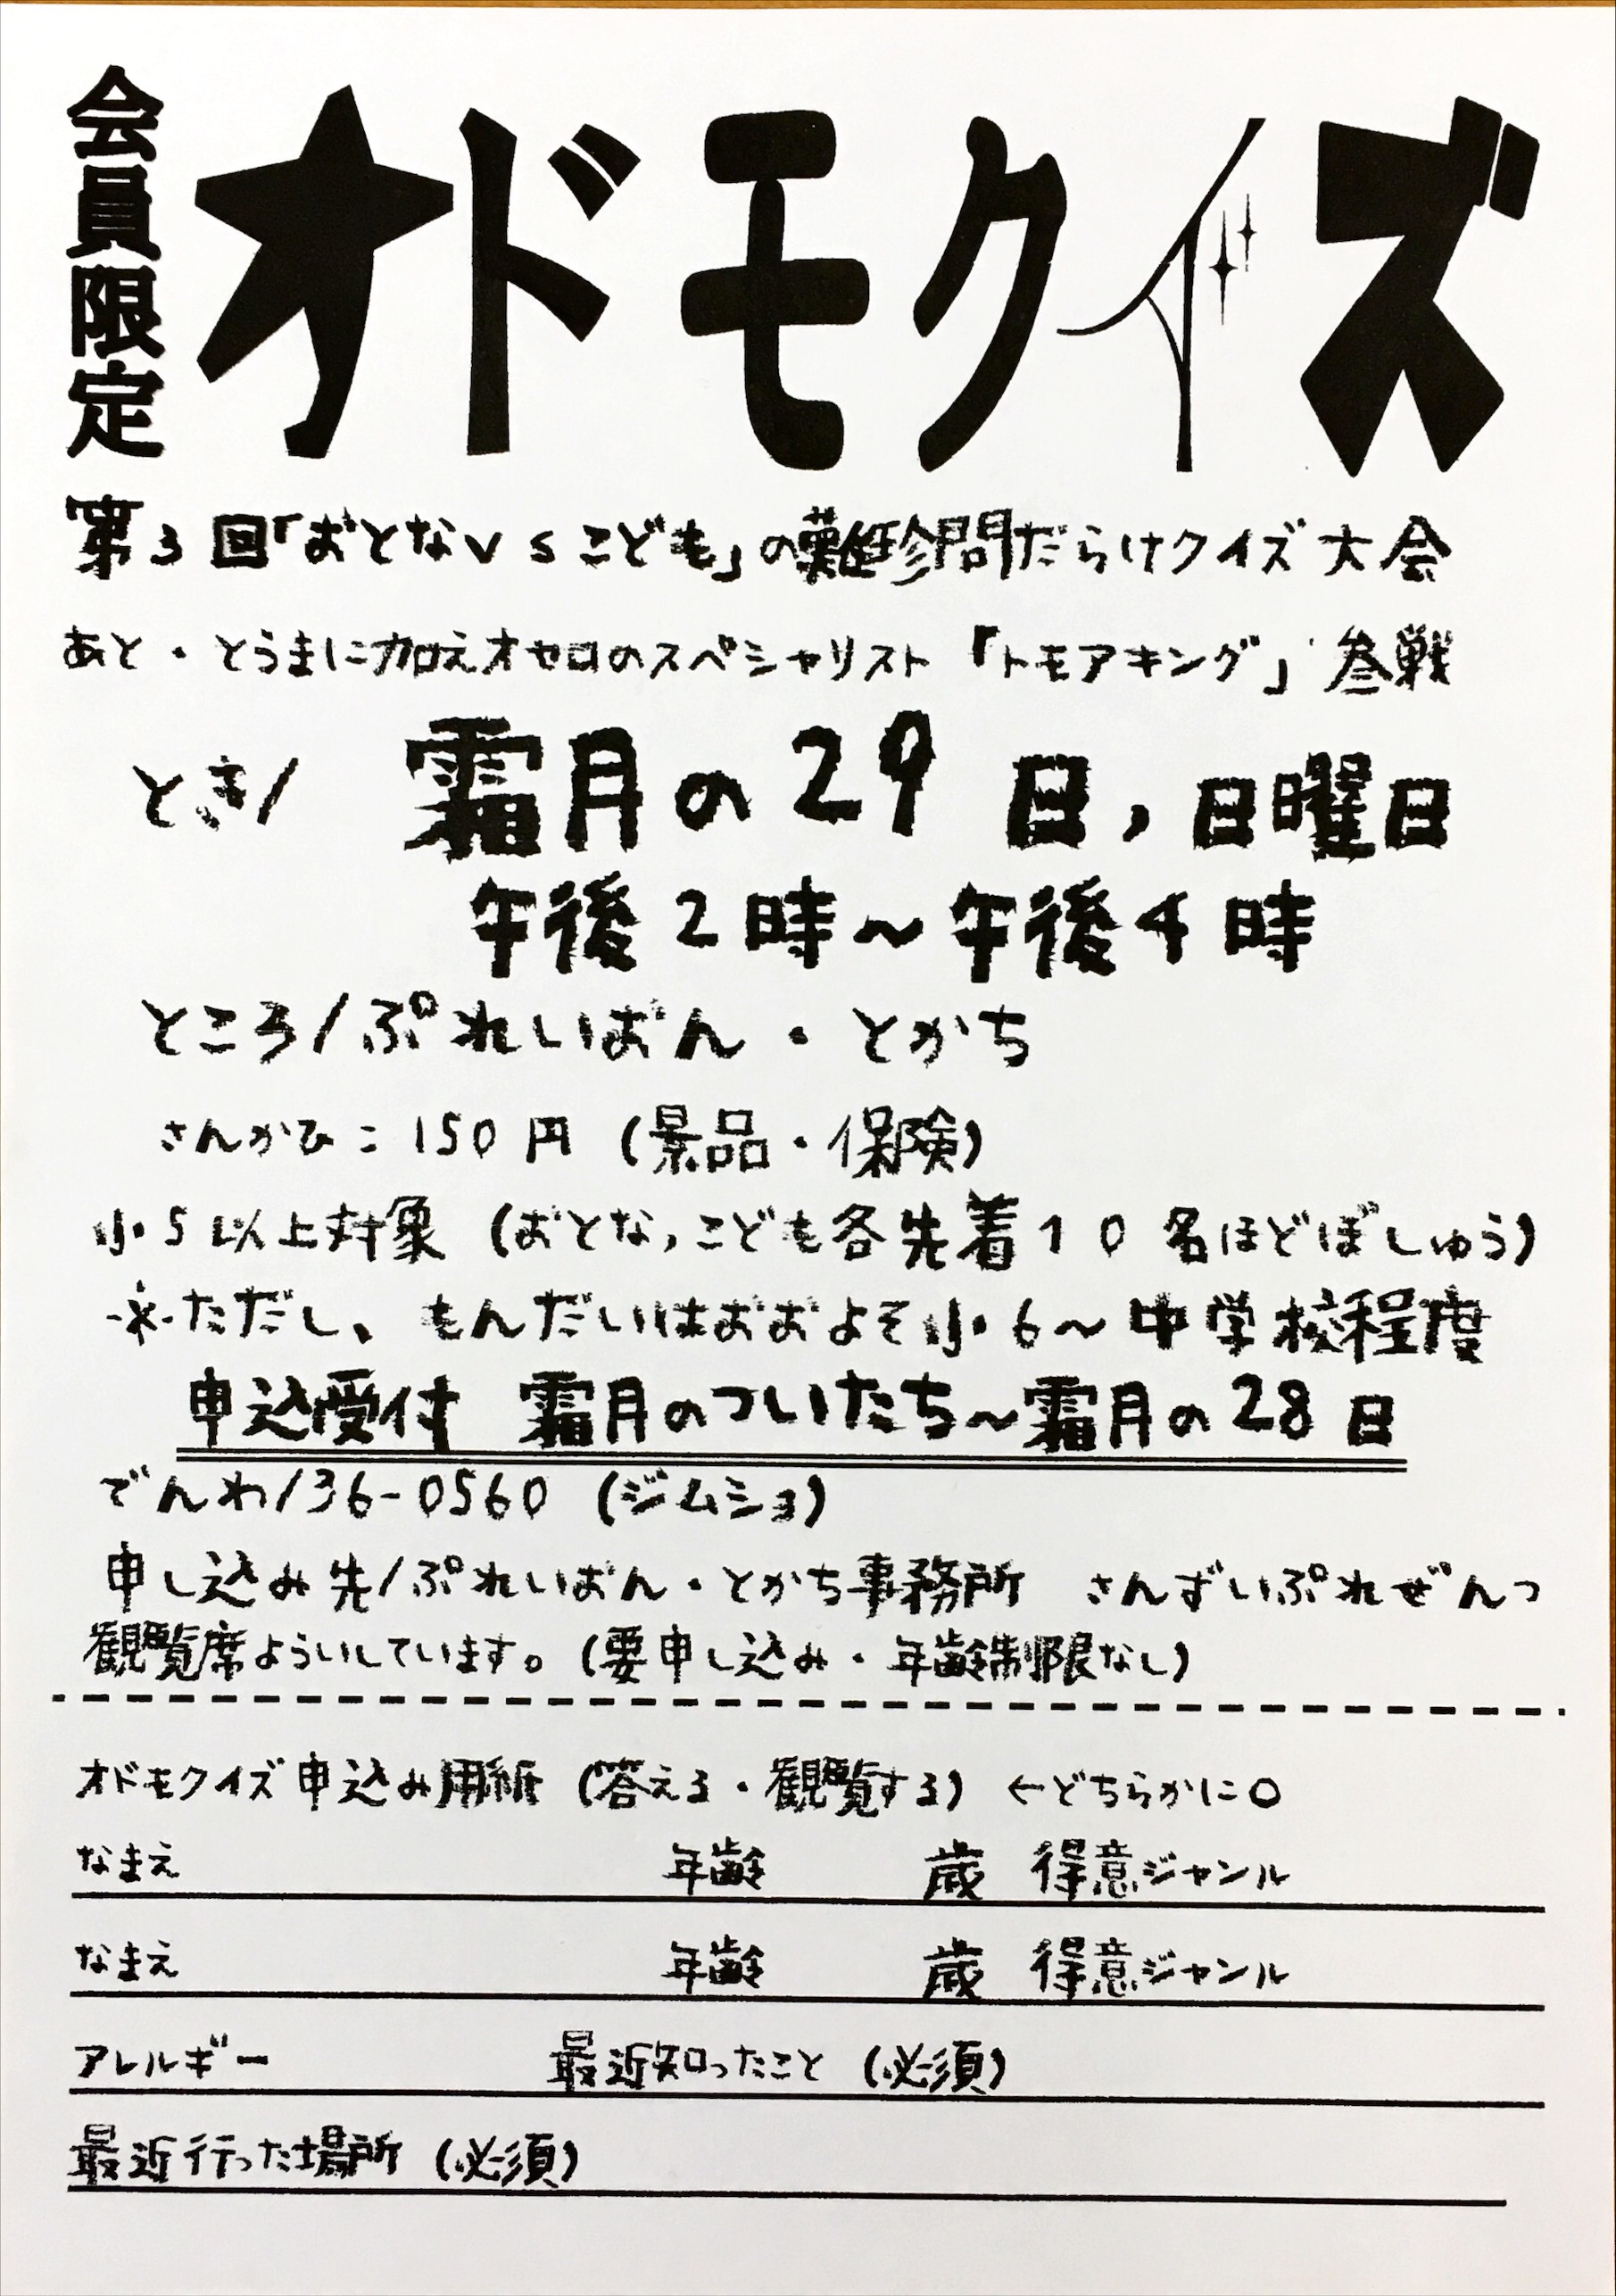 会員限定
オドモクイズ
第3回「おとなVSこども」の難珍問だらけクイズ大会
あと・とうまに加えオセロのスペシャリスト『トモアキング』参戦
とき/ 霜月の29日,日曜日
午後2時～午後4時
ところ/ぷれいおん・とかち
さんかひ:150円(景品・保険)
小5以上対象(おとな,こども各先着10名ほどぼしゅう)
※ただし、もんだいはおおよそ小6～中学校程度
申込受付 霜月のついたち～霜月の28日
でんわ/36-0560(ジムショ)
申し込み先/ぷれいおん・とかち事務所 さんずいぷれぜんつ
観覧席よういしています。(要申し込み・年齢制限なし)
オドモクイズ申込み用紙(答える・観覧する)←どちらかに○
なまえ 年齢 歳 得意ジャンル
なまえ 年齢 歳 得意ジャンル
アレルギー 最近知ったこと(必須)
最近行った場所(必須)